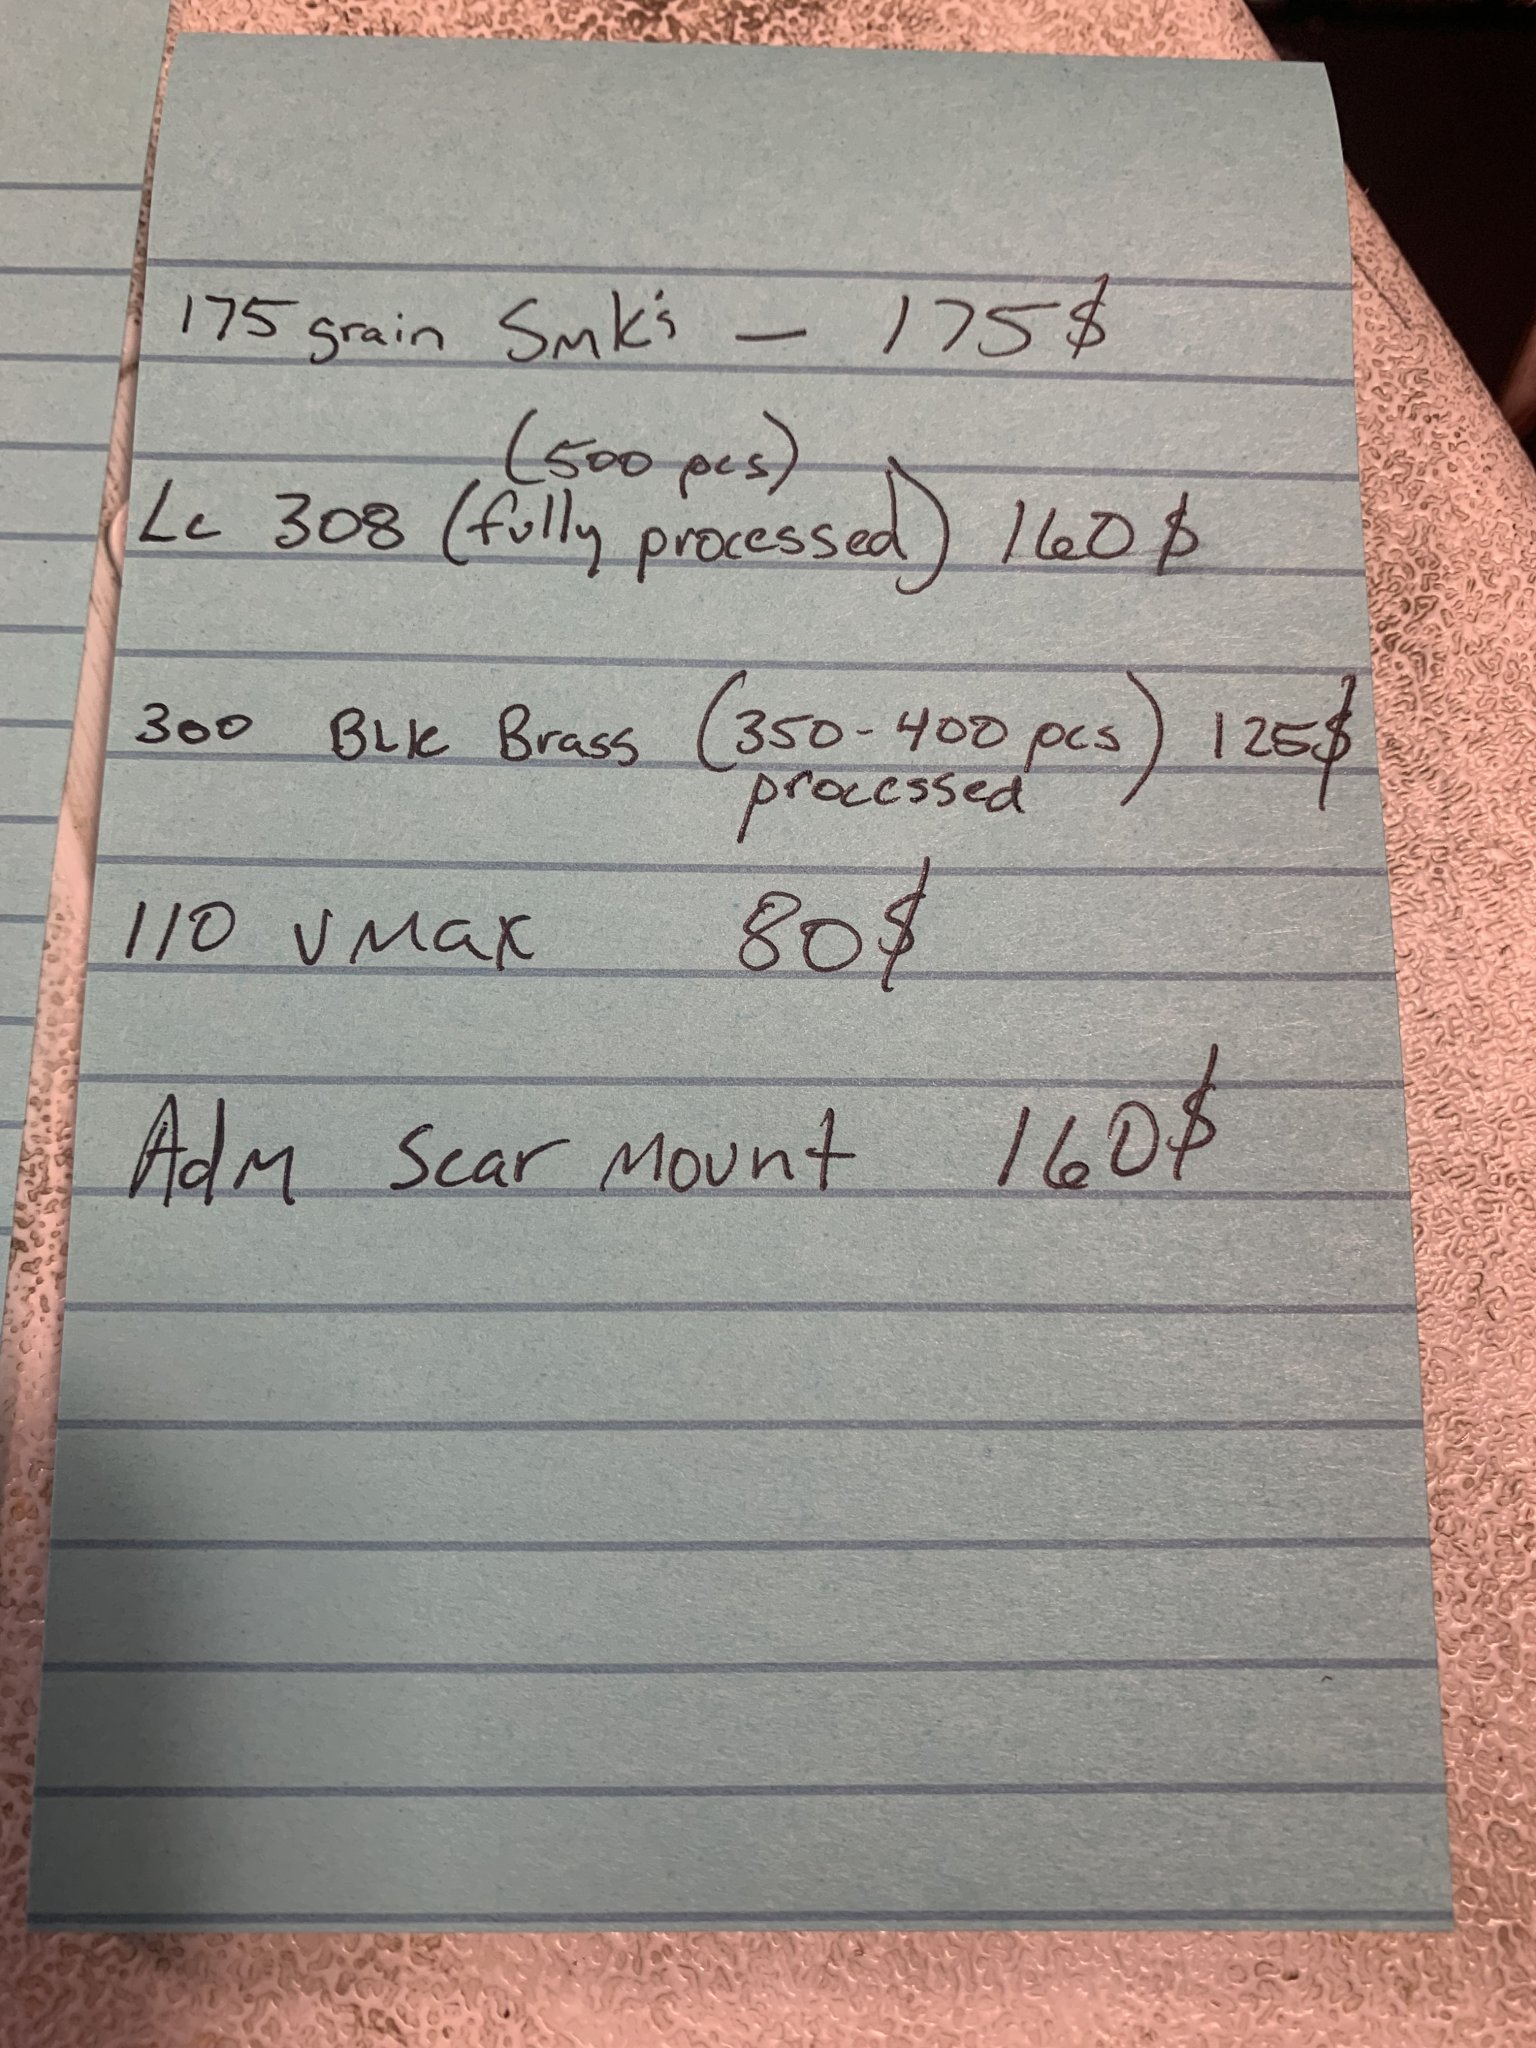 175 grain SMK's — 175$
(500 pcs)
LC 308 (fully processed) 160$
300 BLK Brass (350-400 pcs) 125$
processed
110 VMax 80$
Adm Scar Mount 160$